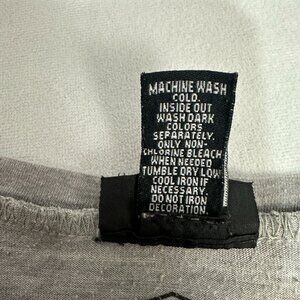 MACHINE WASH
COLD.
INSIDE OUT
WASH DARK
COLORS
SEPARATELY.
ONLY NON-
CHLORINE BLEACH
WHEN NEEDED
TUMBLE DRY LOW
COOL IRON IF
NECESSARY.
DO NOT IRON
DECORATION.